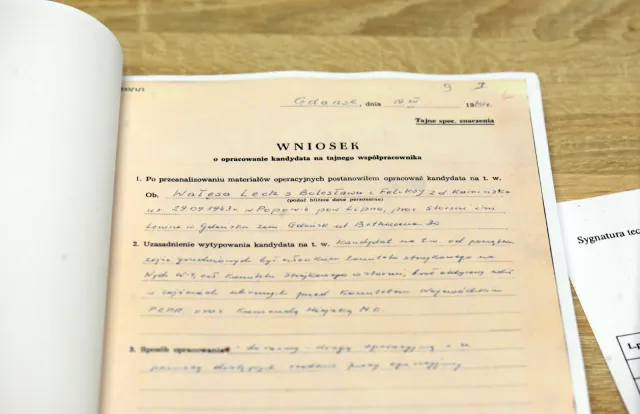 Gdańsk, dnia 14 XII 1970r.
Tajne spec. znaczenia
WNIOSEK
o opracowanie kandydata na tajnego współpracownika
1. Po przeanalizowaniu materiałów operacyjnych postanowiłem opracować kandydata na t. w.
Ob. Wałęsa Lech s Bolesława i Feliksy z d Kamińska
(podać bliższe dane personalne)
ur 29.09 1943r w Popowie pow Lipno, prac stoczni im
Lenina w Gdańsku zam Gdańsk ul
2. Uzasadnienie wytypowania kandydata na t. w. Kandydat na t.w. od początku
zajść grudniowych był członkiem komitetu strajkowego na
Komitetu Strajkowego w stoczni, brał udział
w zajściach ulicznych przed Komitetem Wojewódzkim
PZPR oraz Komendą Miejską M.O
3. Sposób opracowania
Sygnatura tec
Lp